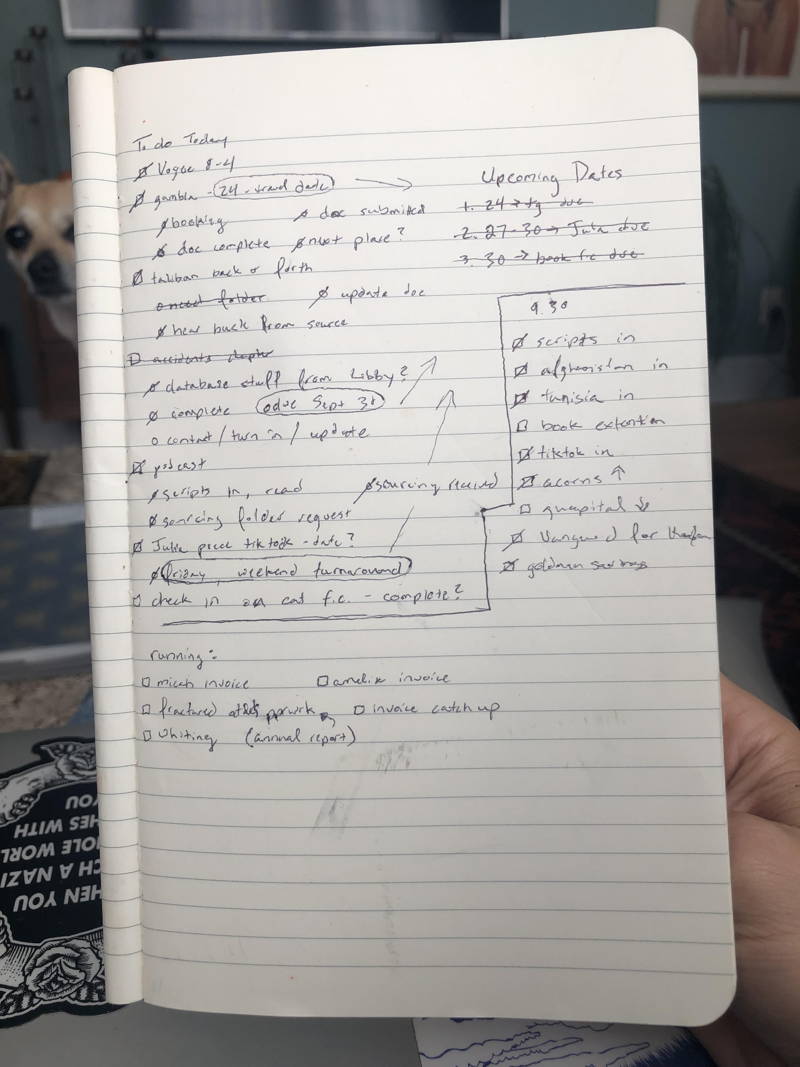 To do Today
Vogue 8-4
gambia - 24 - travel date
booking
doc submitted
doc complete
next place?
taliban back & forth
need folder
update doc
hear back from source
accidents chapter
database stuff from Libby?
complete
due Sept 31
contact / turn in / update
podcast
scripts in, read
sourcing received
sourcing folder request
Julia piece tiktok - date?
friday, weekend turnaround
check in on cat f.c. - complete?
Upcoming Dates
1. 24 → tg due
2. 27-30 → Julia due
3. 30 → book fc due
9.30
scripts in
afghanistan in
tunisia in
book extention
tiktok in
acorns ↑
↓
Vanguard for
goldman savings
running:
micah invoice
amelia invoice
fractured pprwrk
invoice catch up
Whiting (annual report)
WHEN YOU
CH A NAZI
HOLE WORL
HES WITH
YOU